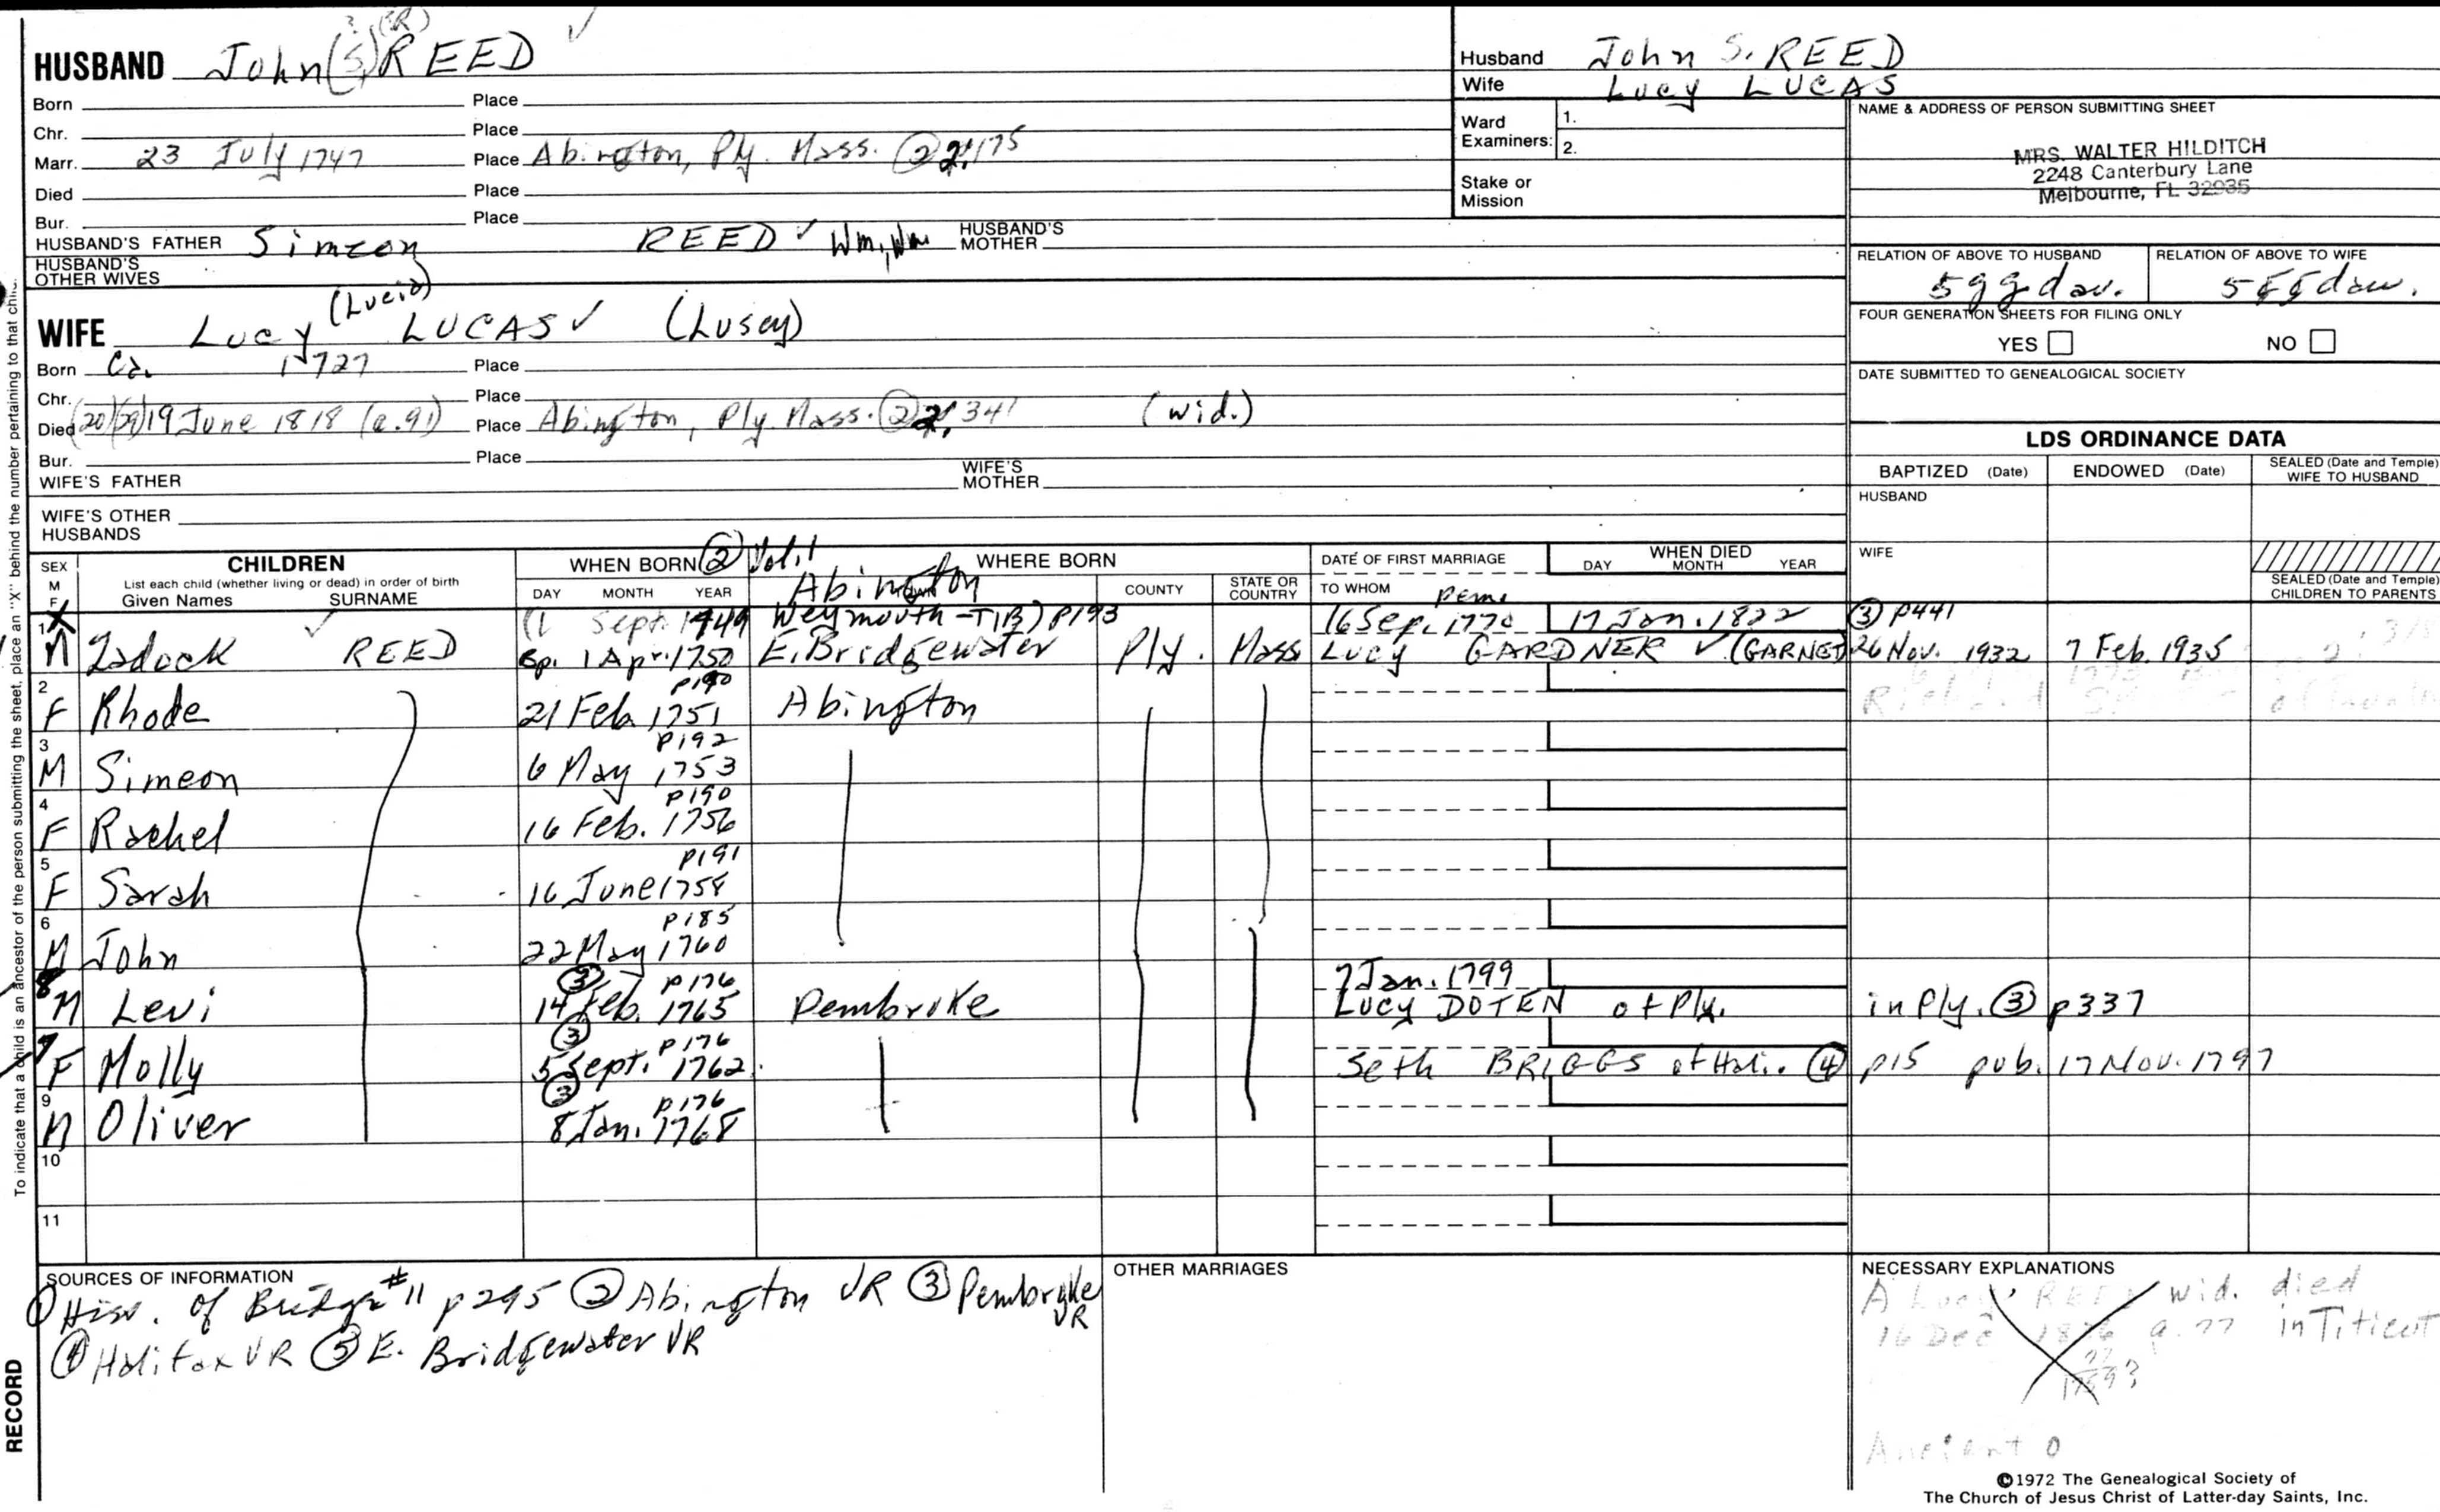 HUSBAND John (S.) REED ✓
? (R)
Born Place
Chr. Place
Marr. 23 July 1747 Place Abington, Ply. Mass. ② 2:175
Died Place
Bur. Place
HUSBAND'S FATHER Simeon REED ✓ Wm, Wm HUSBAND'S MOTHER
HUSBAND'S OTHER WIVES
Husband John S. REED
Wife Lucy LUCAS
Ward Examiners: 1.
2.
Stake or Mission
NAME & ADDRESS OF PERSON SUBMITTING SHEET
MRS. WALTER HILDITCH
2248 Canterbury Lane
Melbourne, FL 32935
RELATION OF ABOVE TO HUSBAND RELATION OF ABOVE TO WIFE
5ggdau. 5ggdau.
FOUR GENERATION SHEETS FOR FILING ONLY
YES NO
DATE SUBMITTED TO GENEALOGICAL SOCIETY
(Lucia)
WIFE Lucy LUCAS ✓ (Lusey)
Born Ca. 1727 Place
Chr. Place
Died (20)(29)19 June 1818 (a.91) Place Abington, Ply. Mass. ② 2:341 (wid.)
Bur. Place
WIFE'S FATHER WIFE'S MOTHER
WIFE'S OTHER HUSBANDS
LDS ORDINANCE DATA
BAPTIZED (Date) ENDOWED (Date) SEALED (Date and Temple) WIFE TO HUSBAND
HUSBAND
WIFE
SEALED (Date and Temple) CHILDREN TO PARENTS
SEX M F CHILDREN
List each child (whether living or dead) in order of birth
Given Names SURNAME
WHEN BORN ② Vol.1
DAY MONTH YEAR
WHERE BORN
Abington COUNTY STATE OR COUNTRY
DATE OF FIRST MARRIAGE
TO WHOM Pem.
WHEN DIED
DAY MONTH YEAR
1 X (1 Sept. 1749 Weymouth-TIB) p193 16 Sep. 1770 17 Jan. 1822 ③ p441
M Zadock ✓ REED Bp. 1 Apr. 1750 E. Bridgewater Ply. Mass Lucy GARDNER ✓ (GARNET) 26 Nov. 1932 7 Feb. 1935
2 p190
F Rhode 21 Feb. 1751 Abington
3 p192
M Simeon 6 May 1753
4 p190
F Rachel 16 Feb. 1756
5 p191
F Sarah 16 June 1758
6 p185
M John 22 May 1760
8 ③ p176 7 Jan. 1799
M Levi 14 Feb. 1765 Pembroke Lucy DOTEN of Ply. in Ply. ③ p337
7 ③ p176
F Molly 5 Sept. 1762 Seth BRIGGS of Hali. ④ p15 pub. 17 Nov. 1797
9 ③ p176
M Oliver 8 Jan. 1768
10
11
SOURCES OF INFORMATION
① Hist. of Bridge #11 p295 ② Abington VR ③ Pembroke VR
④ Halifax VR ⑤ E. Bridgewater VR
OTHER MARRIAGES
NECESSARY EXPLANATIONS
A Lucy REED wid. died
16 Dec a. 77 in Titicut
Ancient
©1972 The Genealogical Society of
The Church of Jesus Christ of Latter-day Saints, Inc.
To indicate that a child is an ancestor of the person submitting the sheet, place an "X" behind the number pertaining to that child.
RECORD